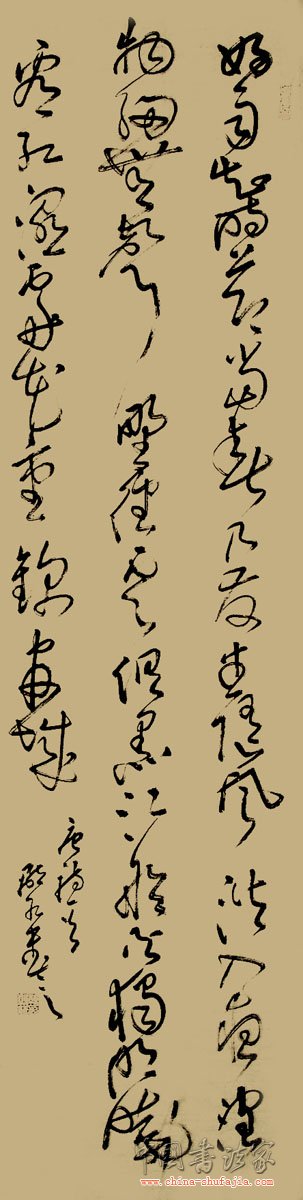 好雨知時節當春乃發生隨風潛入夜潤
物細無聲野徑雲俱黑江船火獨明曉
看紅濕處花重錦官城
唐詩一首
中国书法家
www.china-shufajia.com